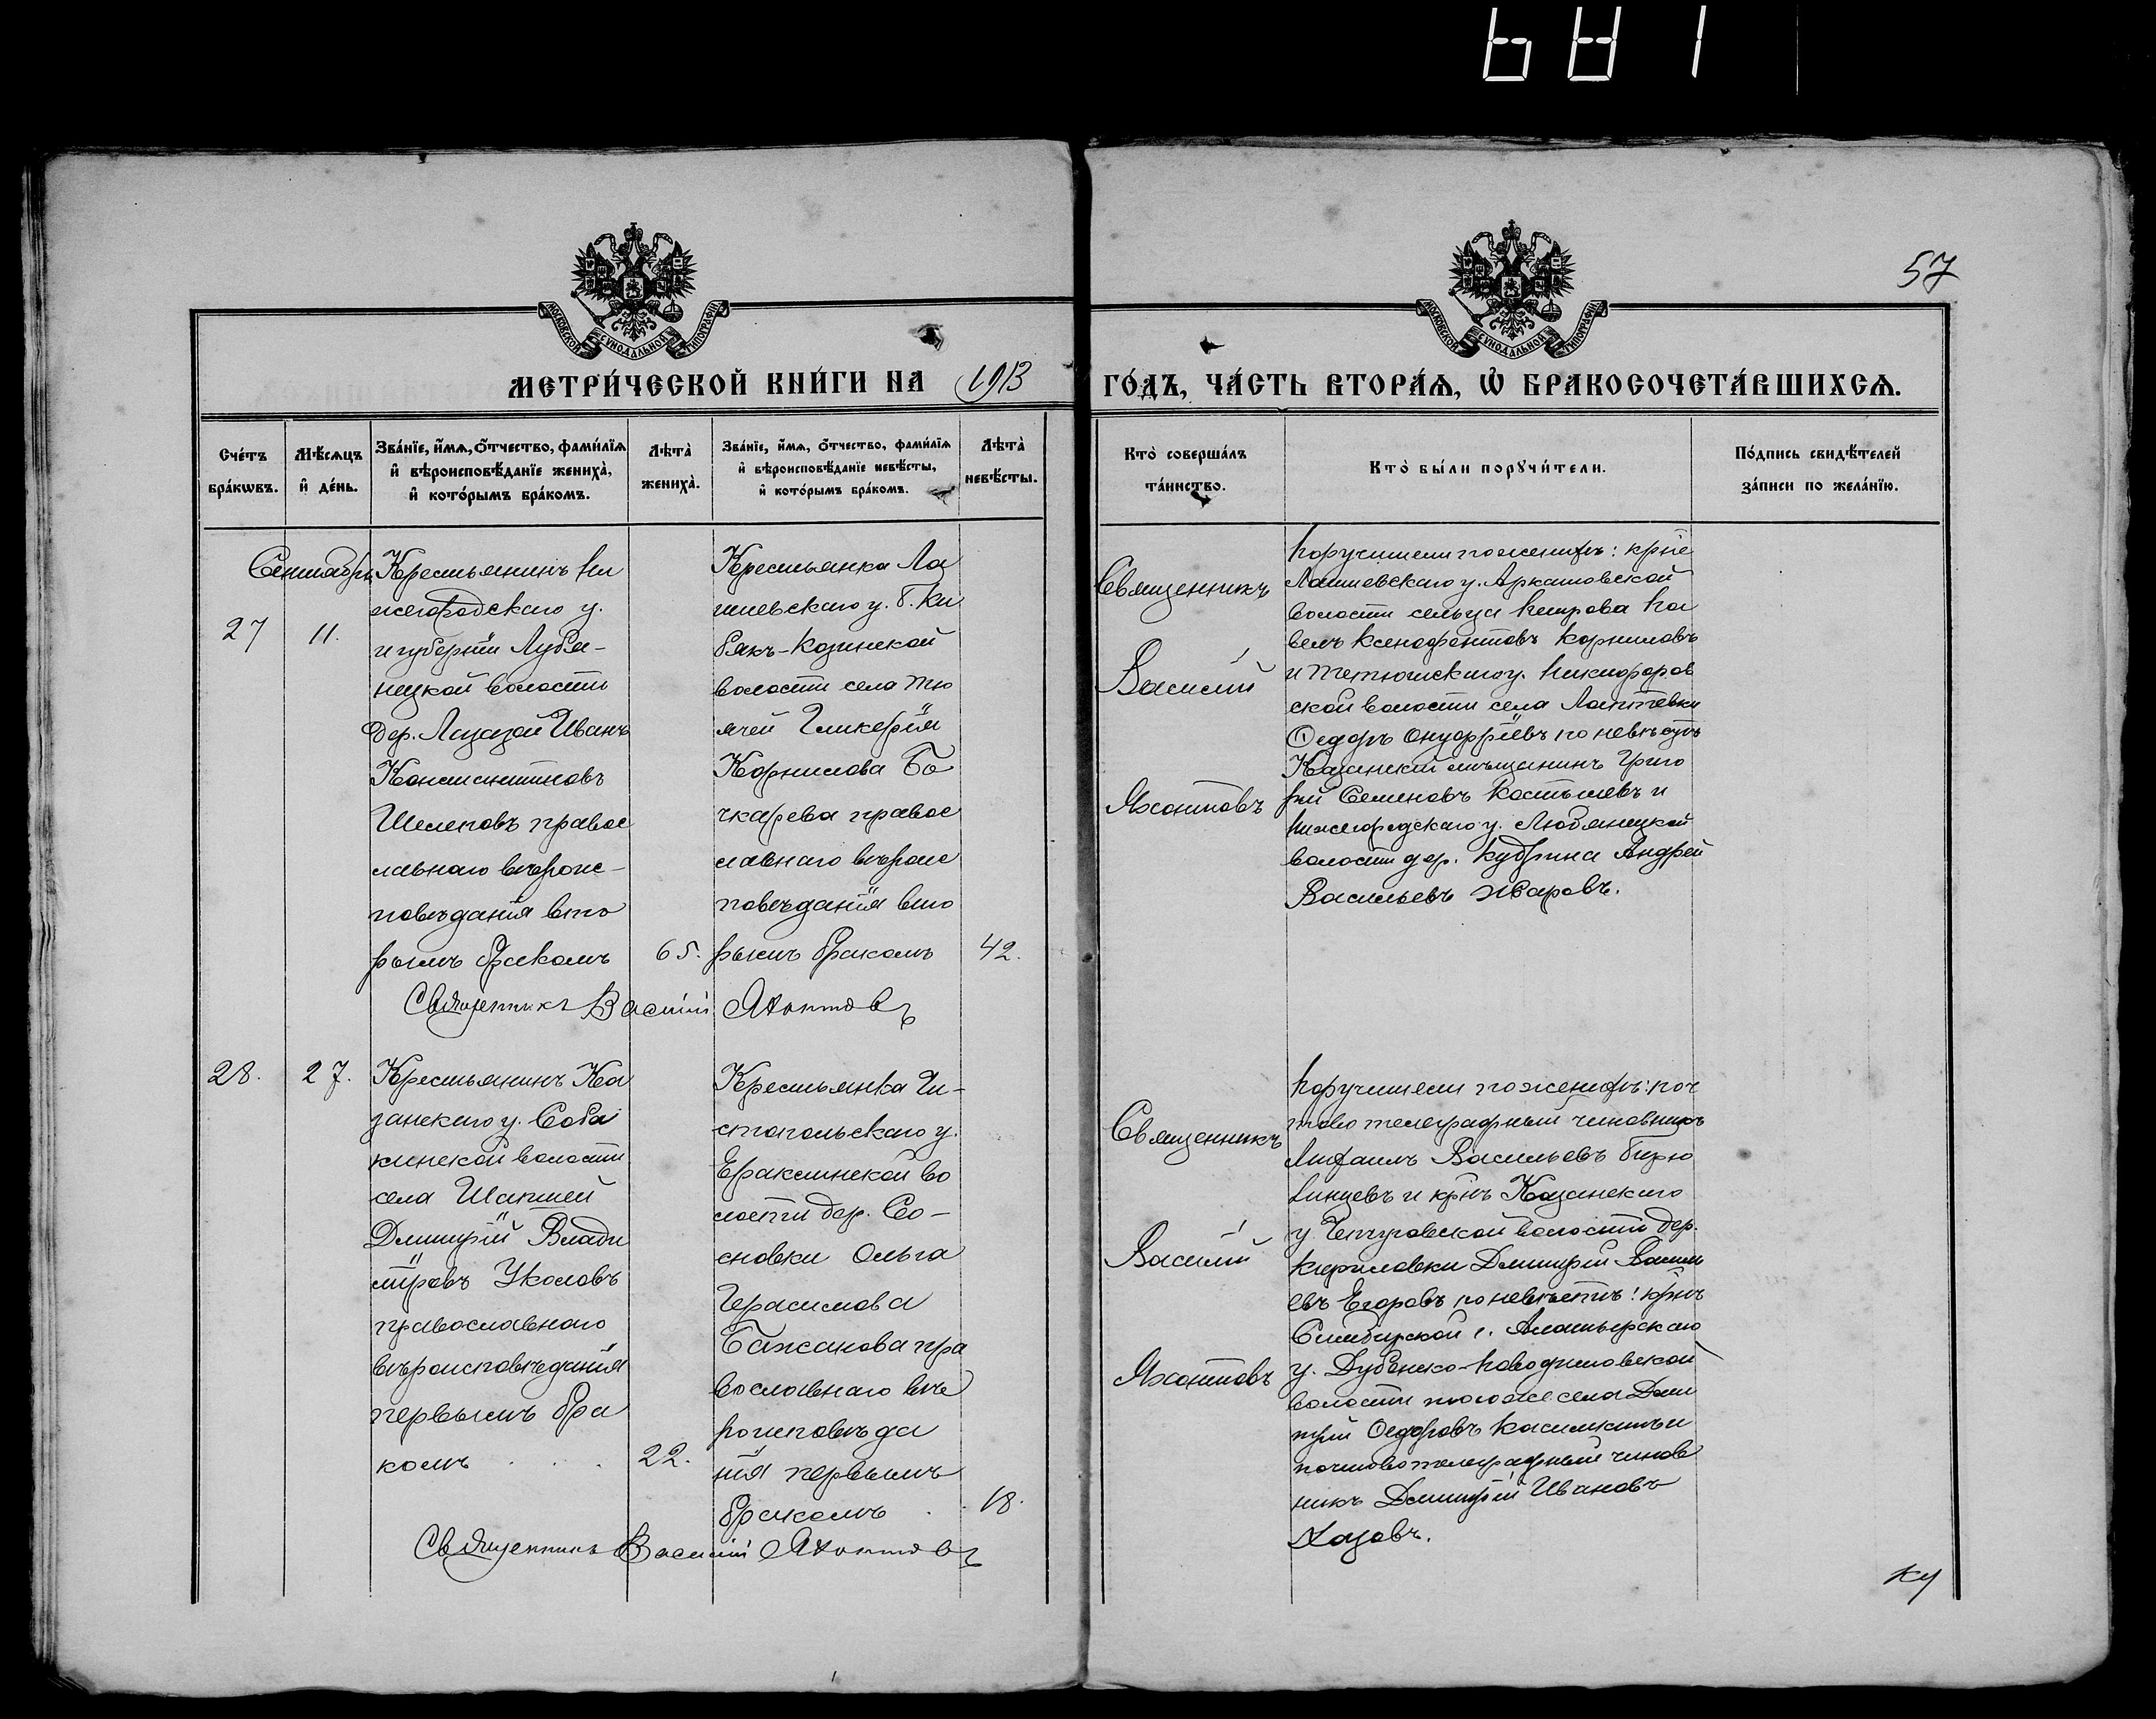 681
57
МОСКОВСКОЙ СѴНОДАЛЬНОЙ ТИПОГРАФІИ
МОСКОВСКОЙ СѴНОДАЛЬНОЙ ТИПОГРАФІИ
МЕТРИ́ЧЕСКОЙ КНИ́ГИ НА 1913 ГО́ДЪ, ЧА́СТЬ ВТОРА́Ѧ, Ѡ҆ БРАКОСОЧЕТА́ВШИХСѦ.
Сче́тъ бра́кѡвъ.
Мѣ́сѧцъ и҆ де́нь.
Зва́нїе, и҆́мѧ, о҆́тчество, фами́лїѧ
и҆ вѣроисповѣ́данїе жениха̀,
и҆ кото́рымъ бра́комъ.
Лѣта̀ жениха̀.
Зва́нїе, и҆́мѧ, о҆́тчество, фами́лїѧ
и҆ вѣроисповѣ́данїе невѣ́сты,
и҆ кото́рымъ бра́комъ.
Лѣта̀ невѣ́сты.
Кто̀ соверша́лъ та́инство.
Кто̀ бы́ли порꙋчи́тели.
По́дпись свидѣ́телей за́писи по жела́нїю.
Сентябрь
27
11.
Крестьянинъ Ни
жегородскаго у.
и губерніи Лубя-
нецкой волости
дер. Лазазей Иванъ
Константиновъ
Шелеповъ правос
лавнаго вѣроис-
повѣданія вто
рымъ бракомъ
65.
Крестьянка Ла
ишевскаго у. б. Ки
бякъ-Козинской
волости села Тю
ячей Гликерія
Корнилова Бо
чкарева правос
лавнаго вѣроис
повѣданія вто
рымъ бракомъ
42.
Священникъ Василій Яхонтовъ
Священникъ
Василій
Яхонтовъ
Поручители по женихѣ: крне
Лаишевскаго у. Аркатовской
волости сельца Петрова Па
велъ Ксенофонтовъ Корниловъ
и Тетюшскаго у. Никифоров
ской волости села Лаптевки
Ѳедоръ Онуфріевъ по невѣстѣ
Казанскій мѣщанинъ Григо
рій Семеновъ Костылевъ и
Нижегородскаго у. Любянецкой
волости дер. Кудрина Андрей
Васильевъ Жваровъ.
28.
27.
Крестьянинъ Ка
занскаго у. Соба
кинской волости
села Шапшей
Димитрій Влади
міровъ Уколовъ
православнаго
вѣроисповѣданія
первымъ бра
комъ . . .
22.
Крестьянка Чи-
стопольскаго у.
Ераклинской во
лости дер. Со-
сновки Ольга
Герасимова
Бажанова пра
вославнаго вѣ
роисповѣда
нія первымъ
бракомъ .
18.
Священникъ Василій Яхонтовъ
Священникъ
Василій
Яхонтовъ
Поручители по женихѣ: поч
тово телеграфный чиновникъ
Михаилъ Васильевъ Бирю
линцевъ и крнъ Казанскаго
у. Чепчуговской волости дер.
Кириловки Димитрій Василь
евъ Егоровъ по невѣстѣ: крнъ
Симбирской г. Алатырскаго
у. Дубенско-Поводимовской
волости того же села Дми
трій Ѳедоровъ Касимкинъ и
почтово телеграфный чинов
никъ Димитрій Ивановъ
Хозовъ.